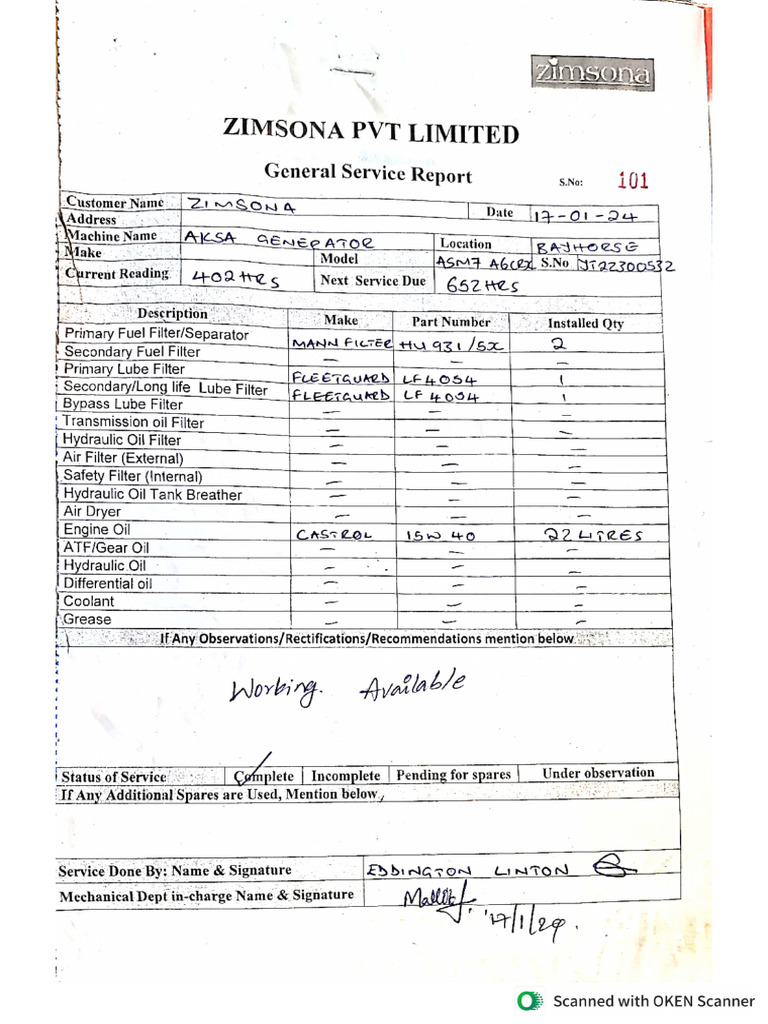 zimsona
ZIMSONA PVT LIMITED
General Service Report
S.No: 101
Customer Name ZIMSONA
Address Date 17-01-24
Machine Name AKSA GENERATOR Location BAJHORSE
Make Model ASM7 A6CRX S.No JT22300532
Current Reading 402HRS Next Service Due 652HRS
Description Make Part Number Installed Qty
Primary Fuel Filter/Separator MANN FILTER HU 931/5X 2
Secondary Fuel Filter — — —
Primary Lube Filter FLEETGUARD LF4054 1
Secondary/Long life Lube Filter FLEETGUARD LF 4054 1
Bypass Lube Filter — — —
Transmission oil Filter — — —
Hydraulic Oil Filter — — —
Air Filter (External) — — —
Safety Filter (Internal) — — —
Hydraulic Oil Tank Breather — — —
Air Dryer — — —
Engine Oil CASTROL 15W 40 22 LITRES
ATF/Gear Oil — — —
Hydraulic Oil — — —
Differential oil — — —
Coolant — — —
Grease — — —
If Any Observations/Rectifications/Recommendations mention below
Working. Available
Status of Service Complete Incomplete Pending for spares Under observation
If Any Additional Spares are Used, Mention below,
Service Done By: Name & Signature EDDINGTON LINTON
Mechanical Dept in-charge Name & Signature
17/1/24.
Scanned with OKEN Scanner